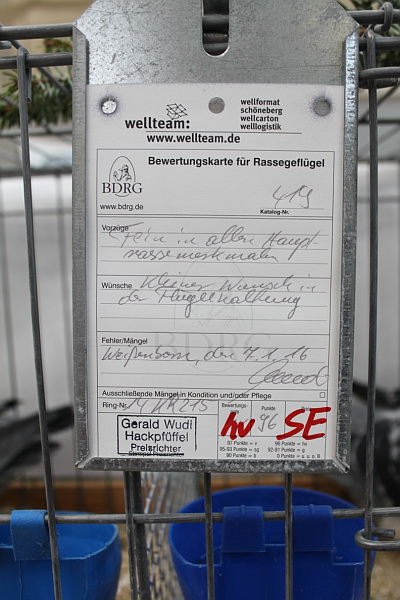 wellteam:
wellformat
schöneberg
wellcarton
welllogistik
www.wellteam.de
Bewertungskarte für Rassegeflügel
BDRG
www.bdrg.de
419
Katalog-Nr.
Vorzüge Fein in allen Haupt-
rassemerkmalen
Wünsche kleiner Wunsch in
der Flügelhaltung
BDRG
Fehler/Mängel
Weißenborn, den 7.1.16
Ausschließende Mängel in Kondition und/oder Pflege
Ring-Nr.
Bewertungs-
Punkte
hv 96 SE
Gerald Wudi
Hackpfüffel
Preisrichter
97 Punkte = v
96 Punkte = hv
95-93 Punkte = sg
92-91 Punkte = g
90 Punkte = b
0 Punkte = u u.o.B.